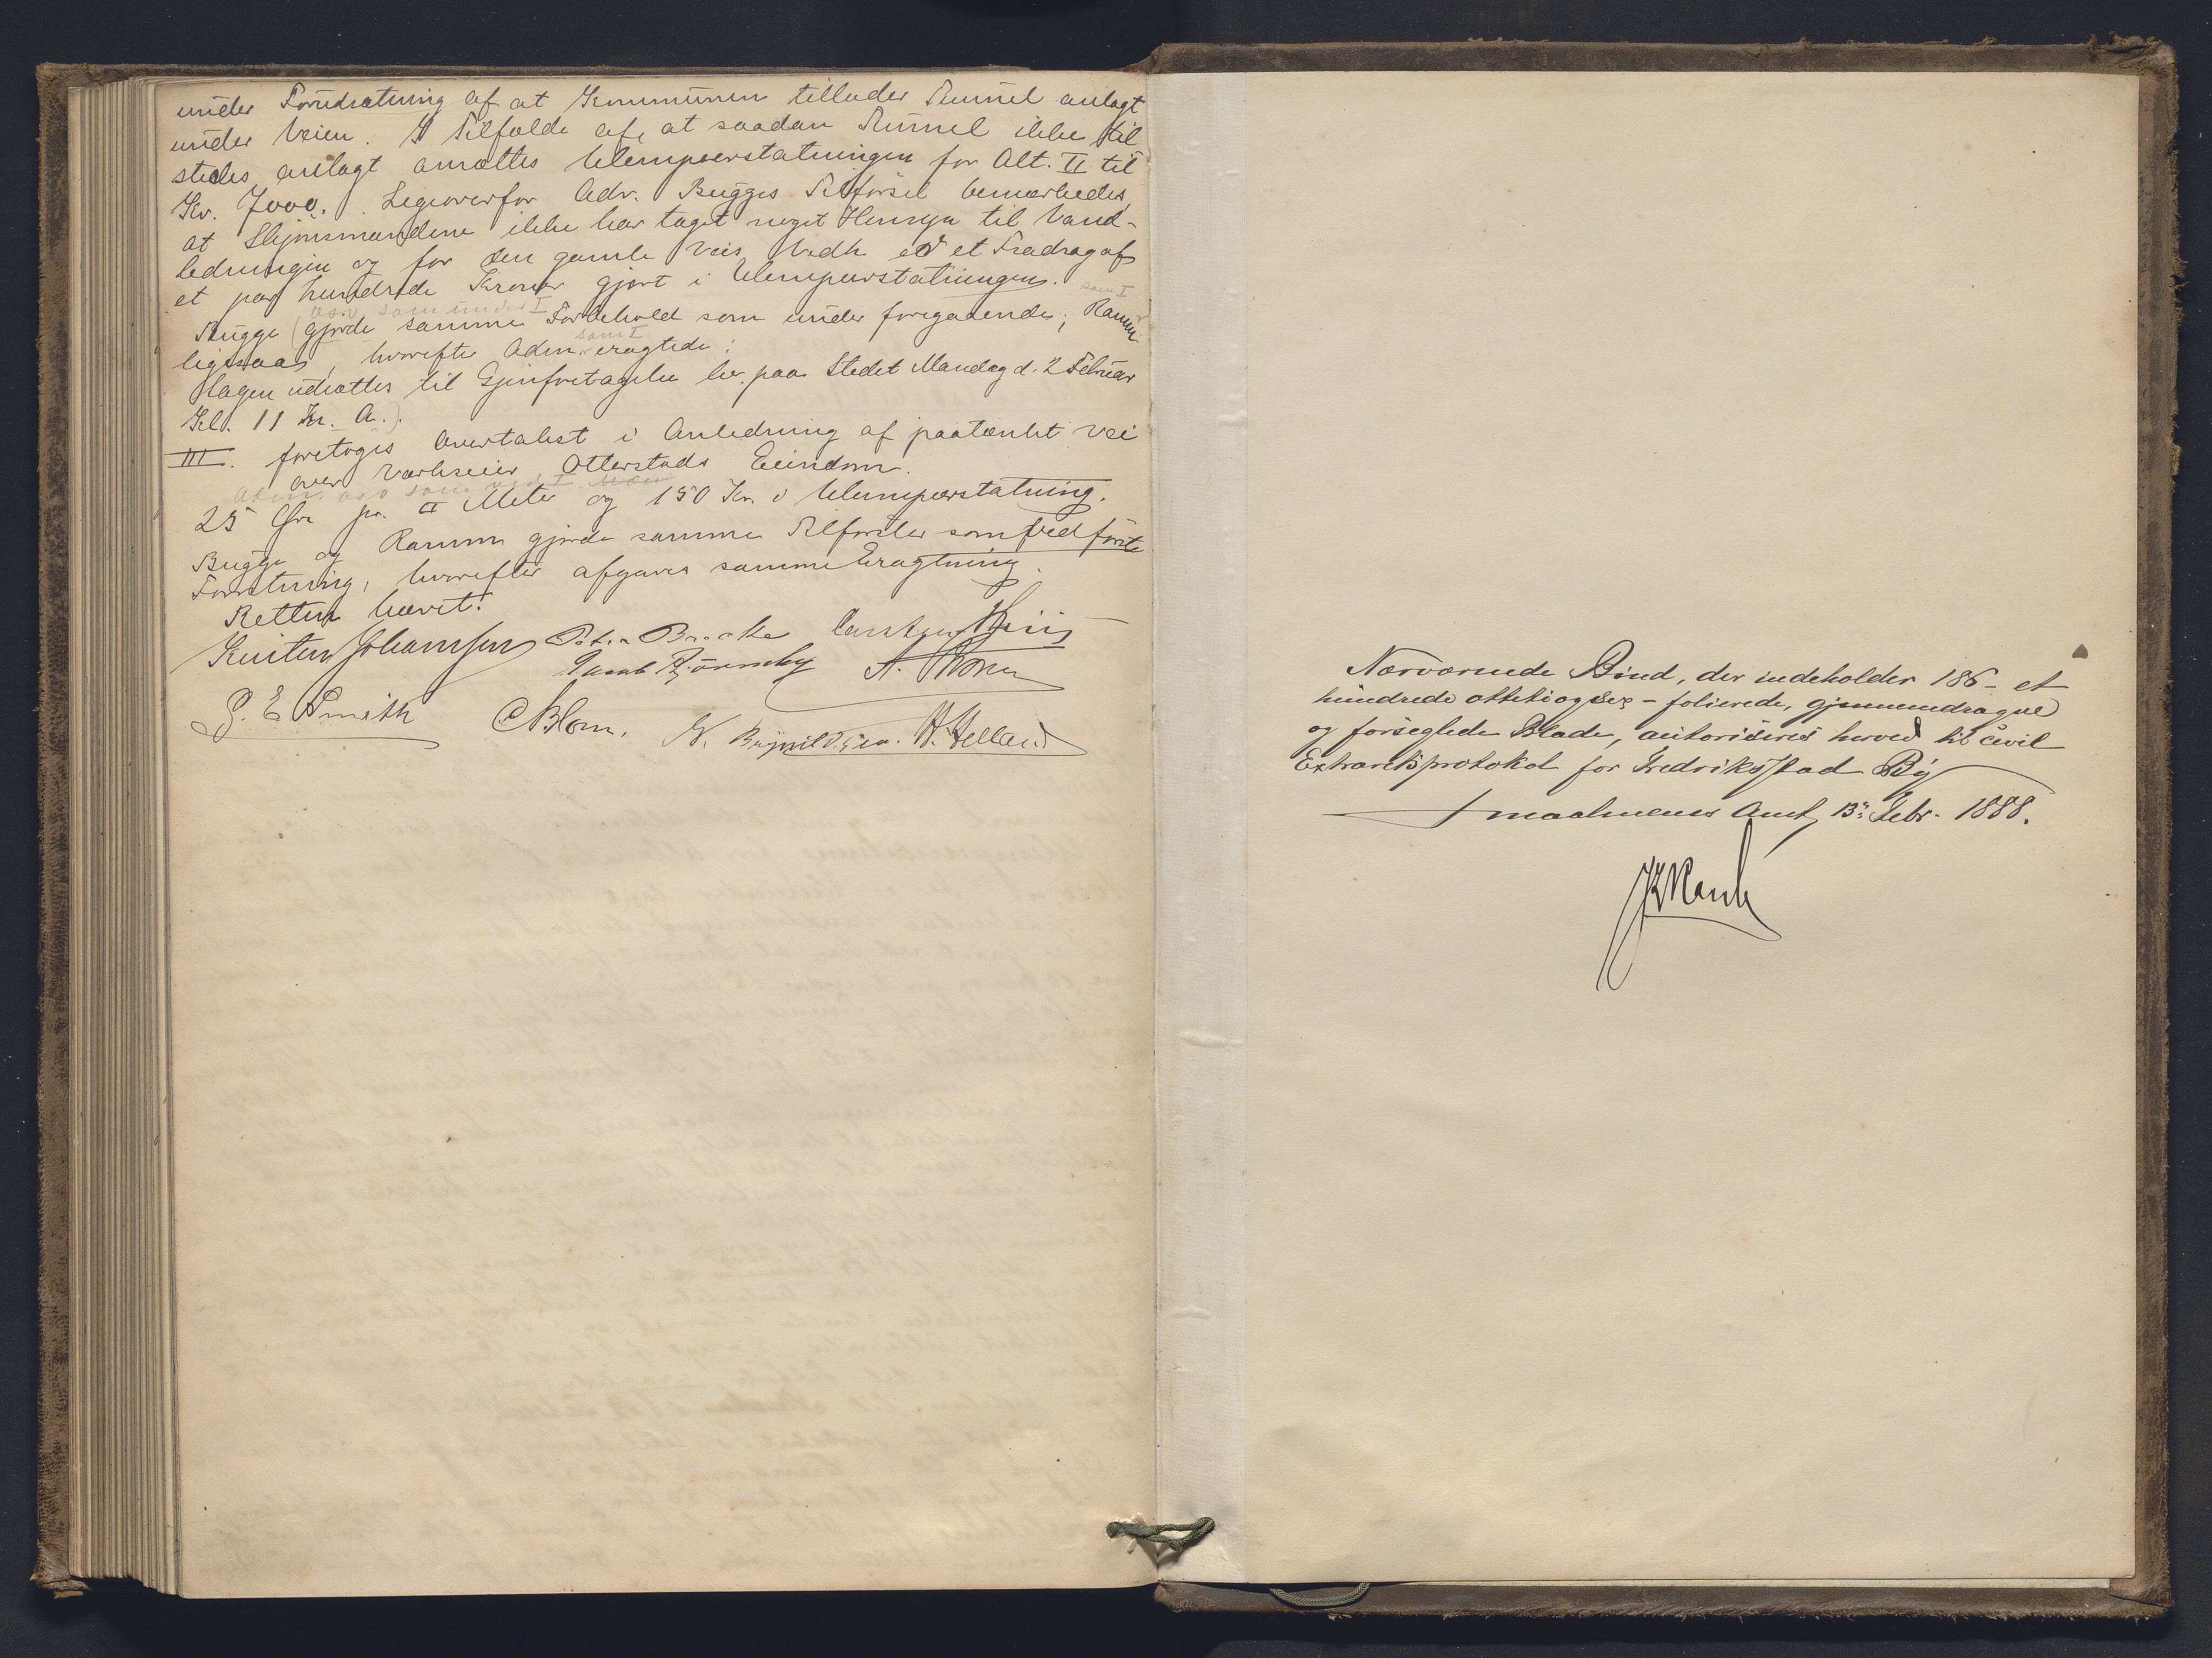 under Forudsætning af at Kommunen tillader Tunnel anlagt
under Veien. I Tilfælde af, at saadan Tunnel ikke til
stedes anlagt ansættes Ulempeerstatningen for Alt. II til
Kr. 7000. Ligeoverfor Adv. Bugges Tilførsel bemærkedes,
at Skjønsmændene ikke har taget noget Hensyn til Vand-
ledningen og for den gamle Veis Vedk er et Fradrag af
et par hundrede Kroner gjort i Ulempeerstatningen.
som I
osv som under I
Bugge (gjorde samme Forbehold som under foregaaende; Ramm
som I
ligesaa, hvorefter Adm. eragtede:
Sagen udsættes til Gjenforetagelse her paa Stedet Mandag d. 2 Februar
Kl. 11 Fr. A.).
III. foretoges Averstakst i Anledning af paatænkt Vei
over Værkseier Otterstads Eiendom.
Adm. osv som ved I
25 Øre pr. □ Meter og 150 Kr. i Ulempeerstatning.
Bugge og Ramm gjorde samme Tilførsler som ved første
Forretning, hvorefter afgaves samme Eragtning.
Retten hævet.
Johannsen Peter Bracke Carsten
Jacob Bjørneby A. Thorn
P. E Smith C Blom. N. H. Helland
Nærværende Bind, der indeholder 186 – et
hundrede ottetiogsex – folierede, gjennemdragne
og forseglede Blade, autoriseres herved til civil
Extraretsprotokol for Fredriksstad By
Smaalenenes Amt, 13de Febr. 1888.